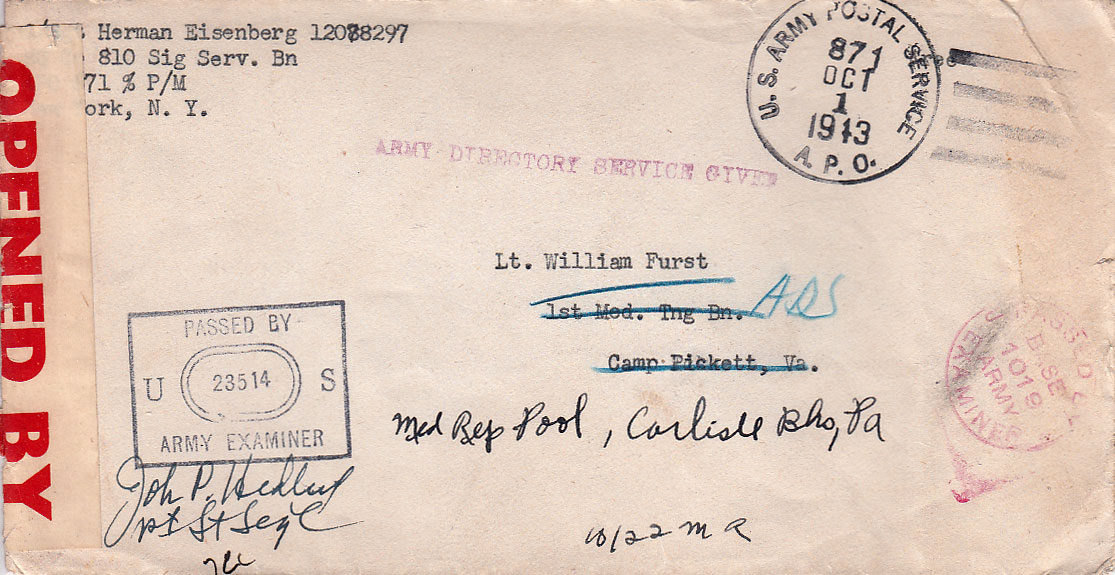 Herman Eisenberg 12078297
810 Sig Serv. Bn
71 % P/M
ork, N. Y.
OPENED BY
U.S. ARMY POSTAL SERVICE
871
OCT
1
1943
A. P. O.
ARMY DIRECTORY SERVICE GIVEN
Lt. William Furst
1st Med. Tng Bn. ADS
Camp Pickett, Va.
Med Rep Pool, Carlisle Bks, Pa
PASSED BY
U 23514 S
ARMY EXAMINER
PASSED
BASE
1019
ARMY
EXAMINER
John P.
10/22 M R